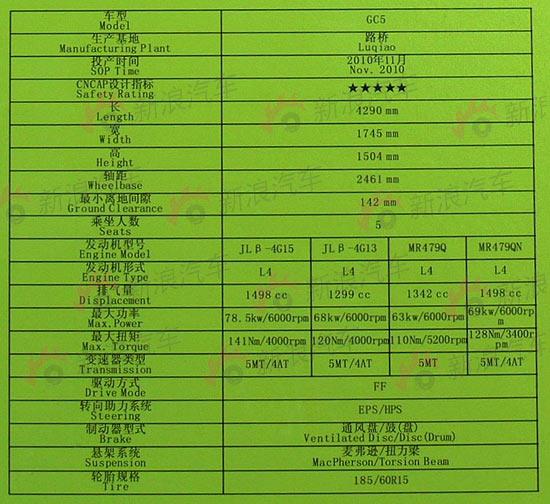 车型 GC5
Model
生产基地 路桥
Manufacturing Plant Luqiao
投产时间 2010年11月
SOP Time Nov. 2010
CNCAP设计指标 ★★★★★
Safety Rating
长 4290 mm
Length
宽 1745 mm
Width
高 1504 mm
Height
轴距 2461 mm
Wheelbase
最小离地间隙 142 mm
Ground Clearance
乘坐人数 5
Seats
发动机型号 JLβ-4G15 JLβ-4G13 MR479Q MR479QN
Engine Model
发动机形式 L4 L4 L4 L4
Engine Type
排气量 1498 cc 1299 cc 1342 cc 1498 cc
Displacement
最大功率 78.5kw/6000rpm 68kw/6000rpm 63kw/6000rpm 69kw/6000rpm
Max.Power
最大扭矩 141Nm/4000rpm 120Nm/4000rpm 110Nm/5200rpm 128Nm/3400rpm
Max. Torque
变速器类型 5MT/4AT 5MT/4AT 5MT 5MT/4AT
Transmission
驱动方式 FF
Drive Mode
转向助力系统 EPS/HPS
Steering
制动器型式 通风盘/鼓(盘)
Brake Ventilated Disc/Disc(Drum)
悬架系统 麦弗逊/扭力梁
Suspension MacPherson/Torsion Beam
轮胎规格 185/60R15
Tire
新浪汽车